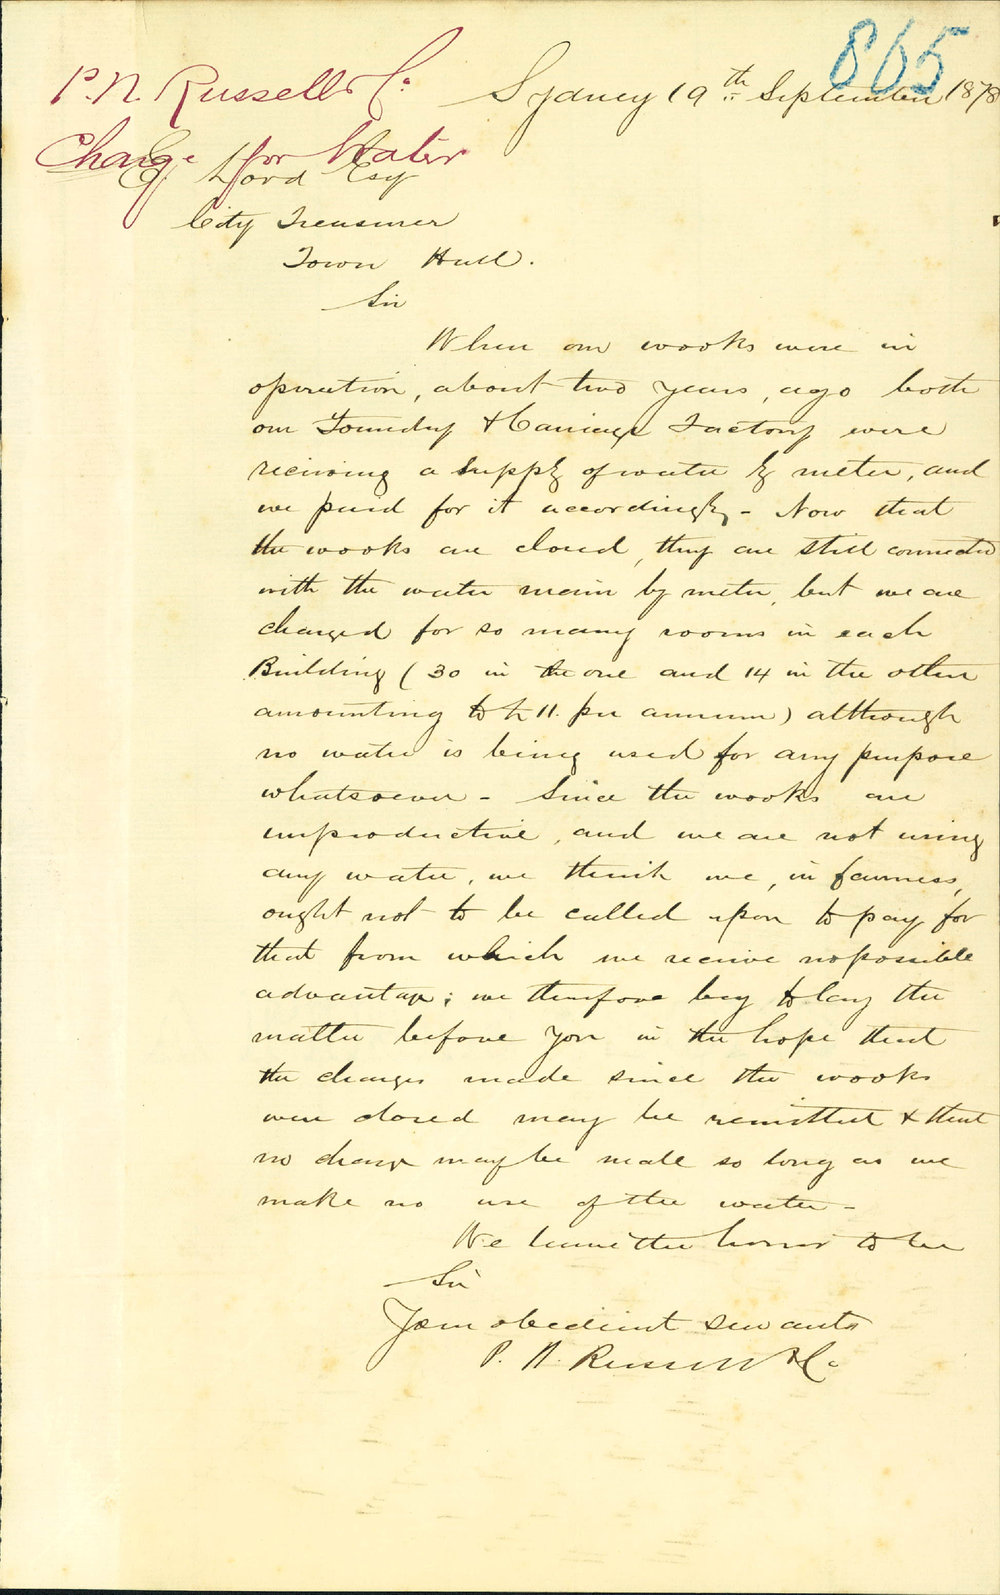 865
P. N. Russell & Co
Charge for Water
Sydney 19th September 1878
E. Lord Esq
City Treasurer
Town Hall.
Sir
When our works were in
operation, about two years, ago both
our Foundry & Carriage Factory were
receiving a supply of water by meter, and
we paid for it accordingly - Now that
the works are closed, they are still connected
with the water main by meter, but we are
charged for so many rooms in each
Building (30 in the one and 14 in the other
amounting to £11. per annum) although
no water is being used for any purpose
whatsoever - Since the works are
unproductive, and we are not using
any water, we think we, in fairness,
ought not to be called upon to pay for
that from which we receive no possible
advantage; we therefore beg to lay the
matter before you in the hope that
the charges made since the works
were closed may be remitted & that
no charge may be made so long as we
make no use of the water -
We have the honor to be
Sir
Your obedient servants
P. N. Russell & Co